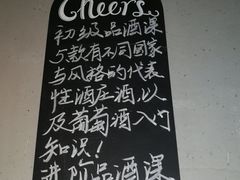 Cheers
初级品酒课
5款有不同国家
与风格的代表
性酒庄酒,以
及葡萄酒入门
知识!
进阶品酒课